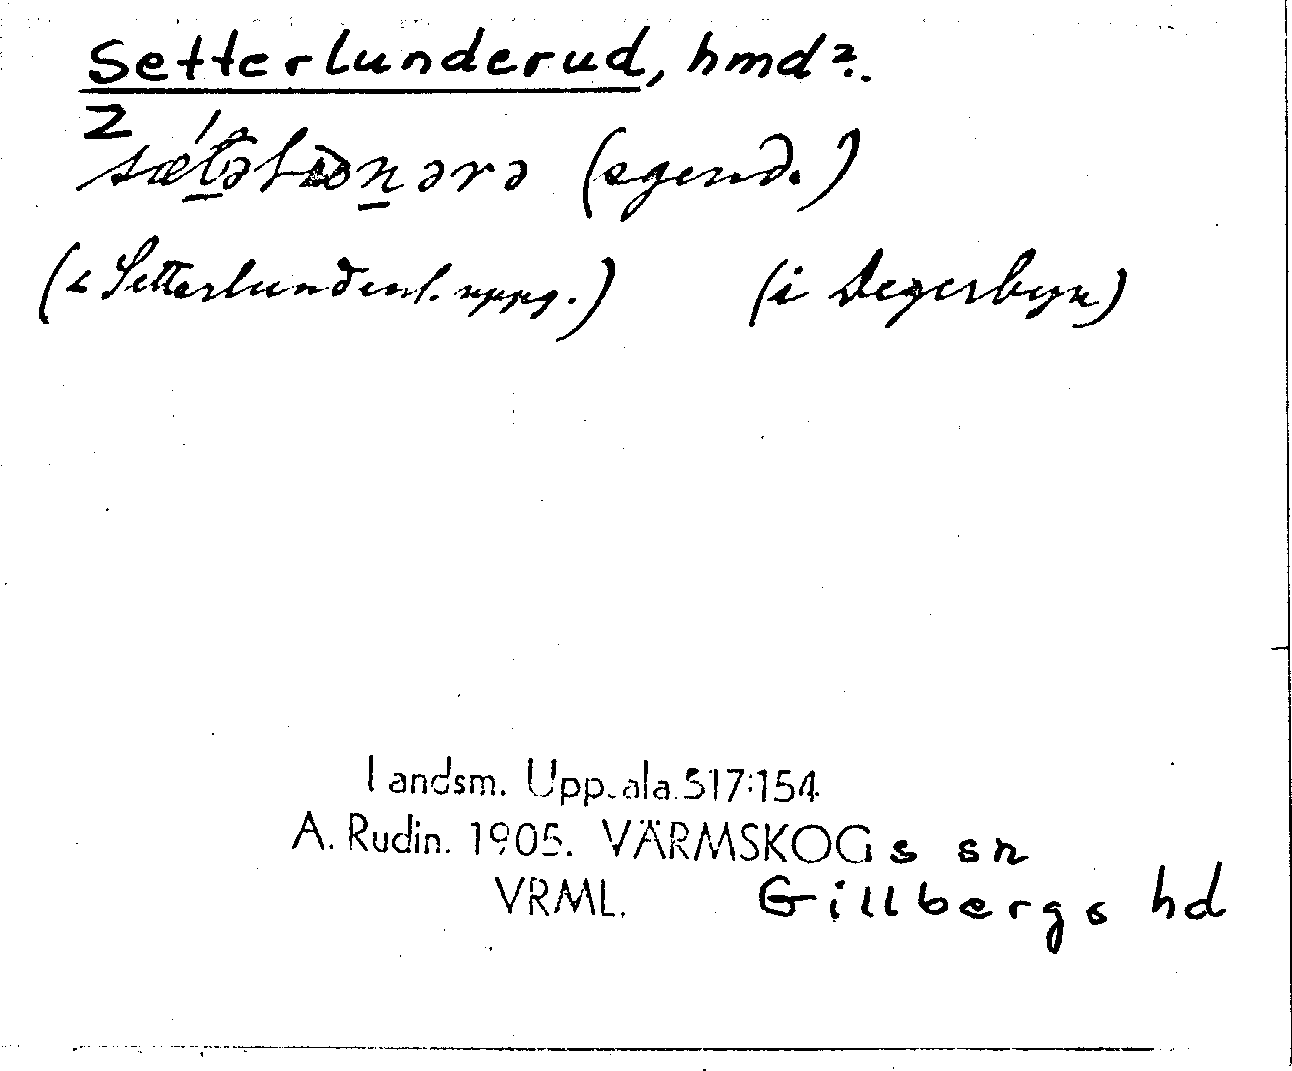 Setterlunderud, hmd?.
2
(egend.)
(< Setterlund enl. uppg.) (i Degerbyn)
Landsm. Uppsala 517:154
A. Rudin. 1905. VÄRMSKOGs sn
VRML. Gillbergs hd